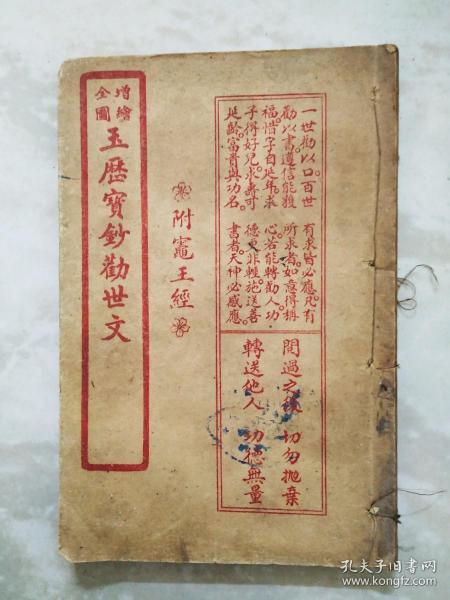 一世勸以口百世
勸以書遵信能獲
福惜字自延年求
子得好兒求壽可
延齡富貴與功名
有求皆必應凡有
所求者如意得稱
心若能轉勸人功
德更非輕施送善
書者天神必感應
閱過之後 切勿拋棄
轉送他人 功德無量
附竈王經
增繪
全圖
玉歷寶鈔勸世文
孔夫子旧书网
www.kongfz.com